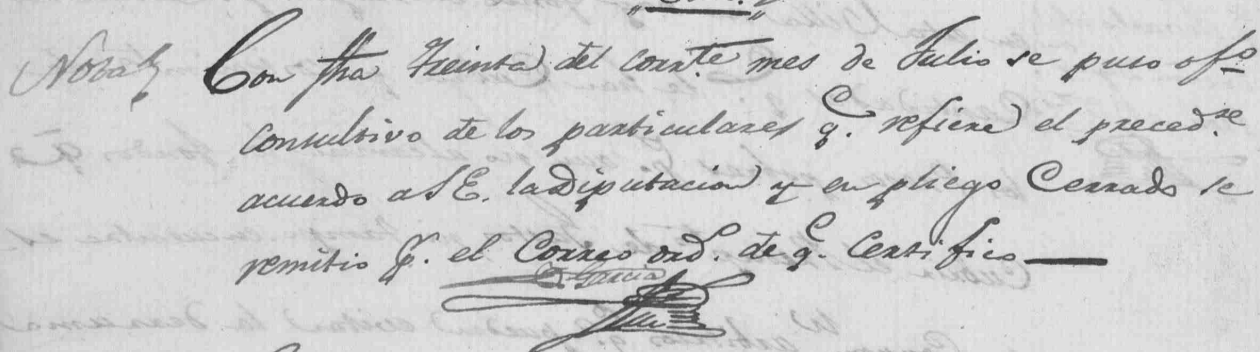 Nota Con fha treinta del corrte. mes de Julio se puso ofo
consultivo de los particulares q. refiere el precedte.
acuerdo a S E. la Diputacion y en pliego Cerrado se
remitio p. el Correo ord. de q. Certifico
Garcia